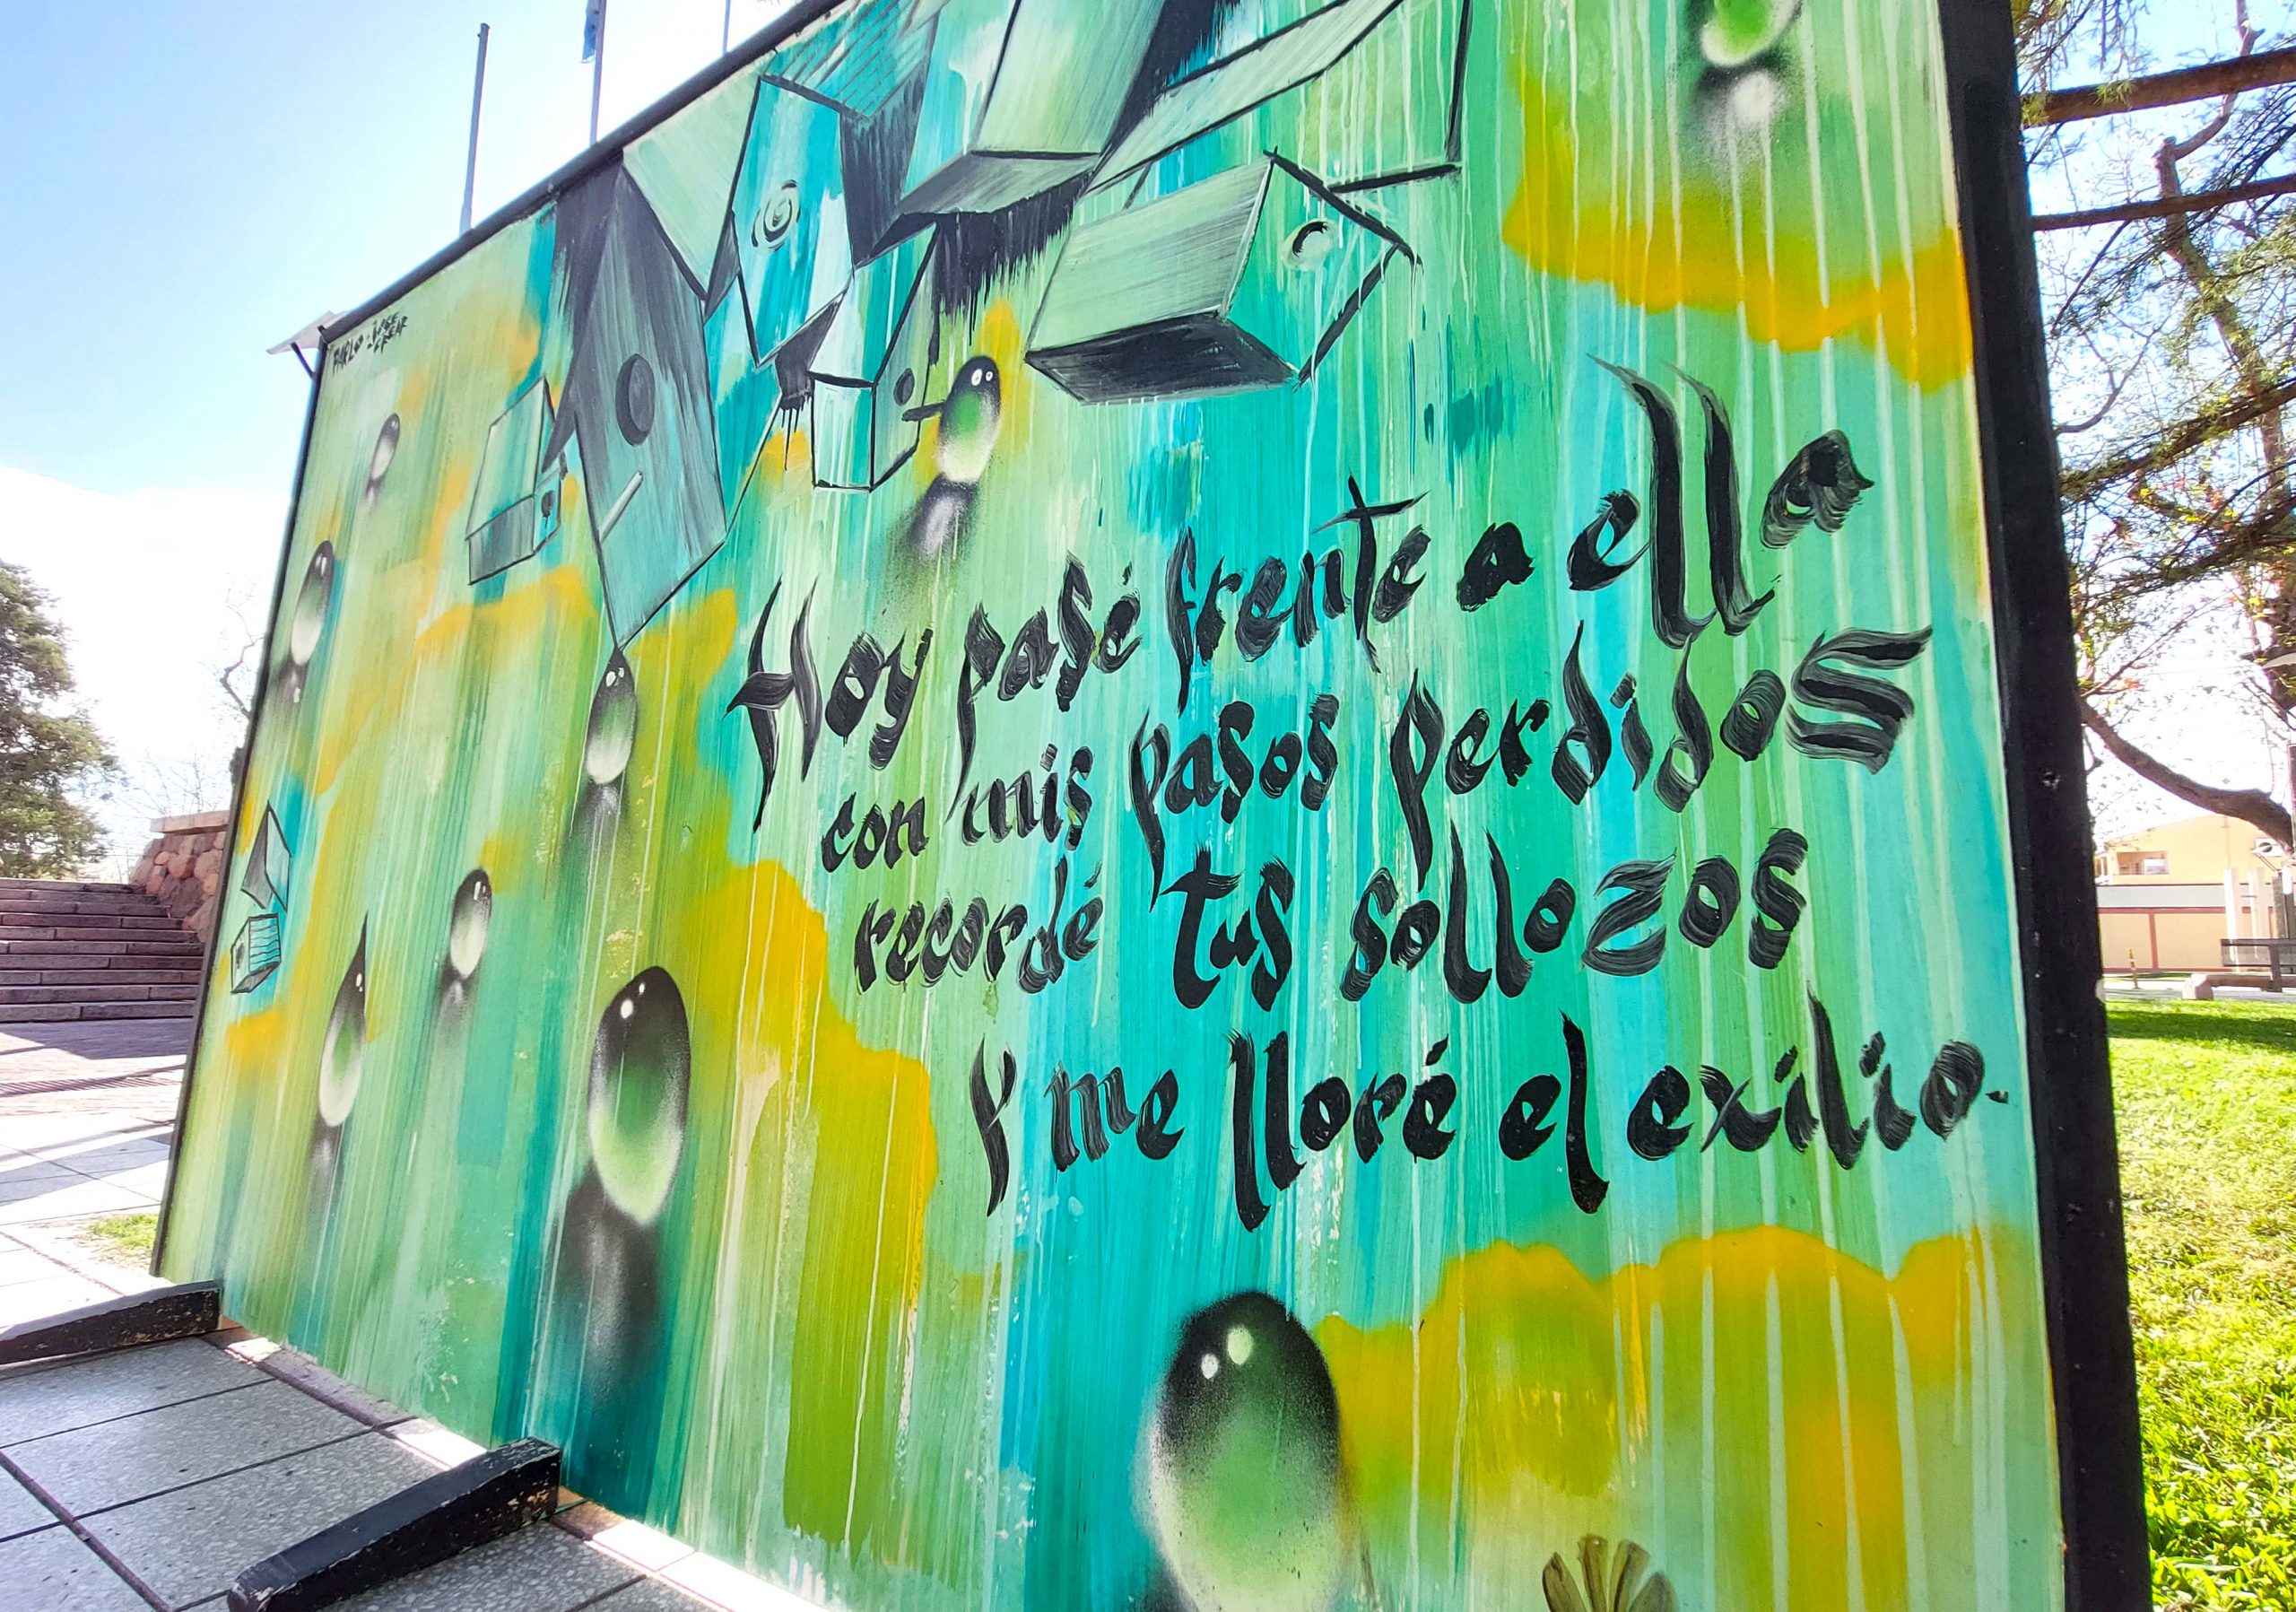 PABLO
Hoy pasé frente a ella
con mis pasos perdidos
recordé tus sollozos
y me lloré el exilio.